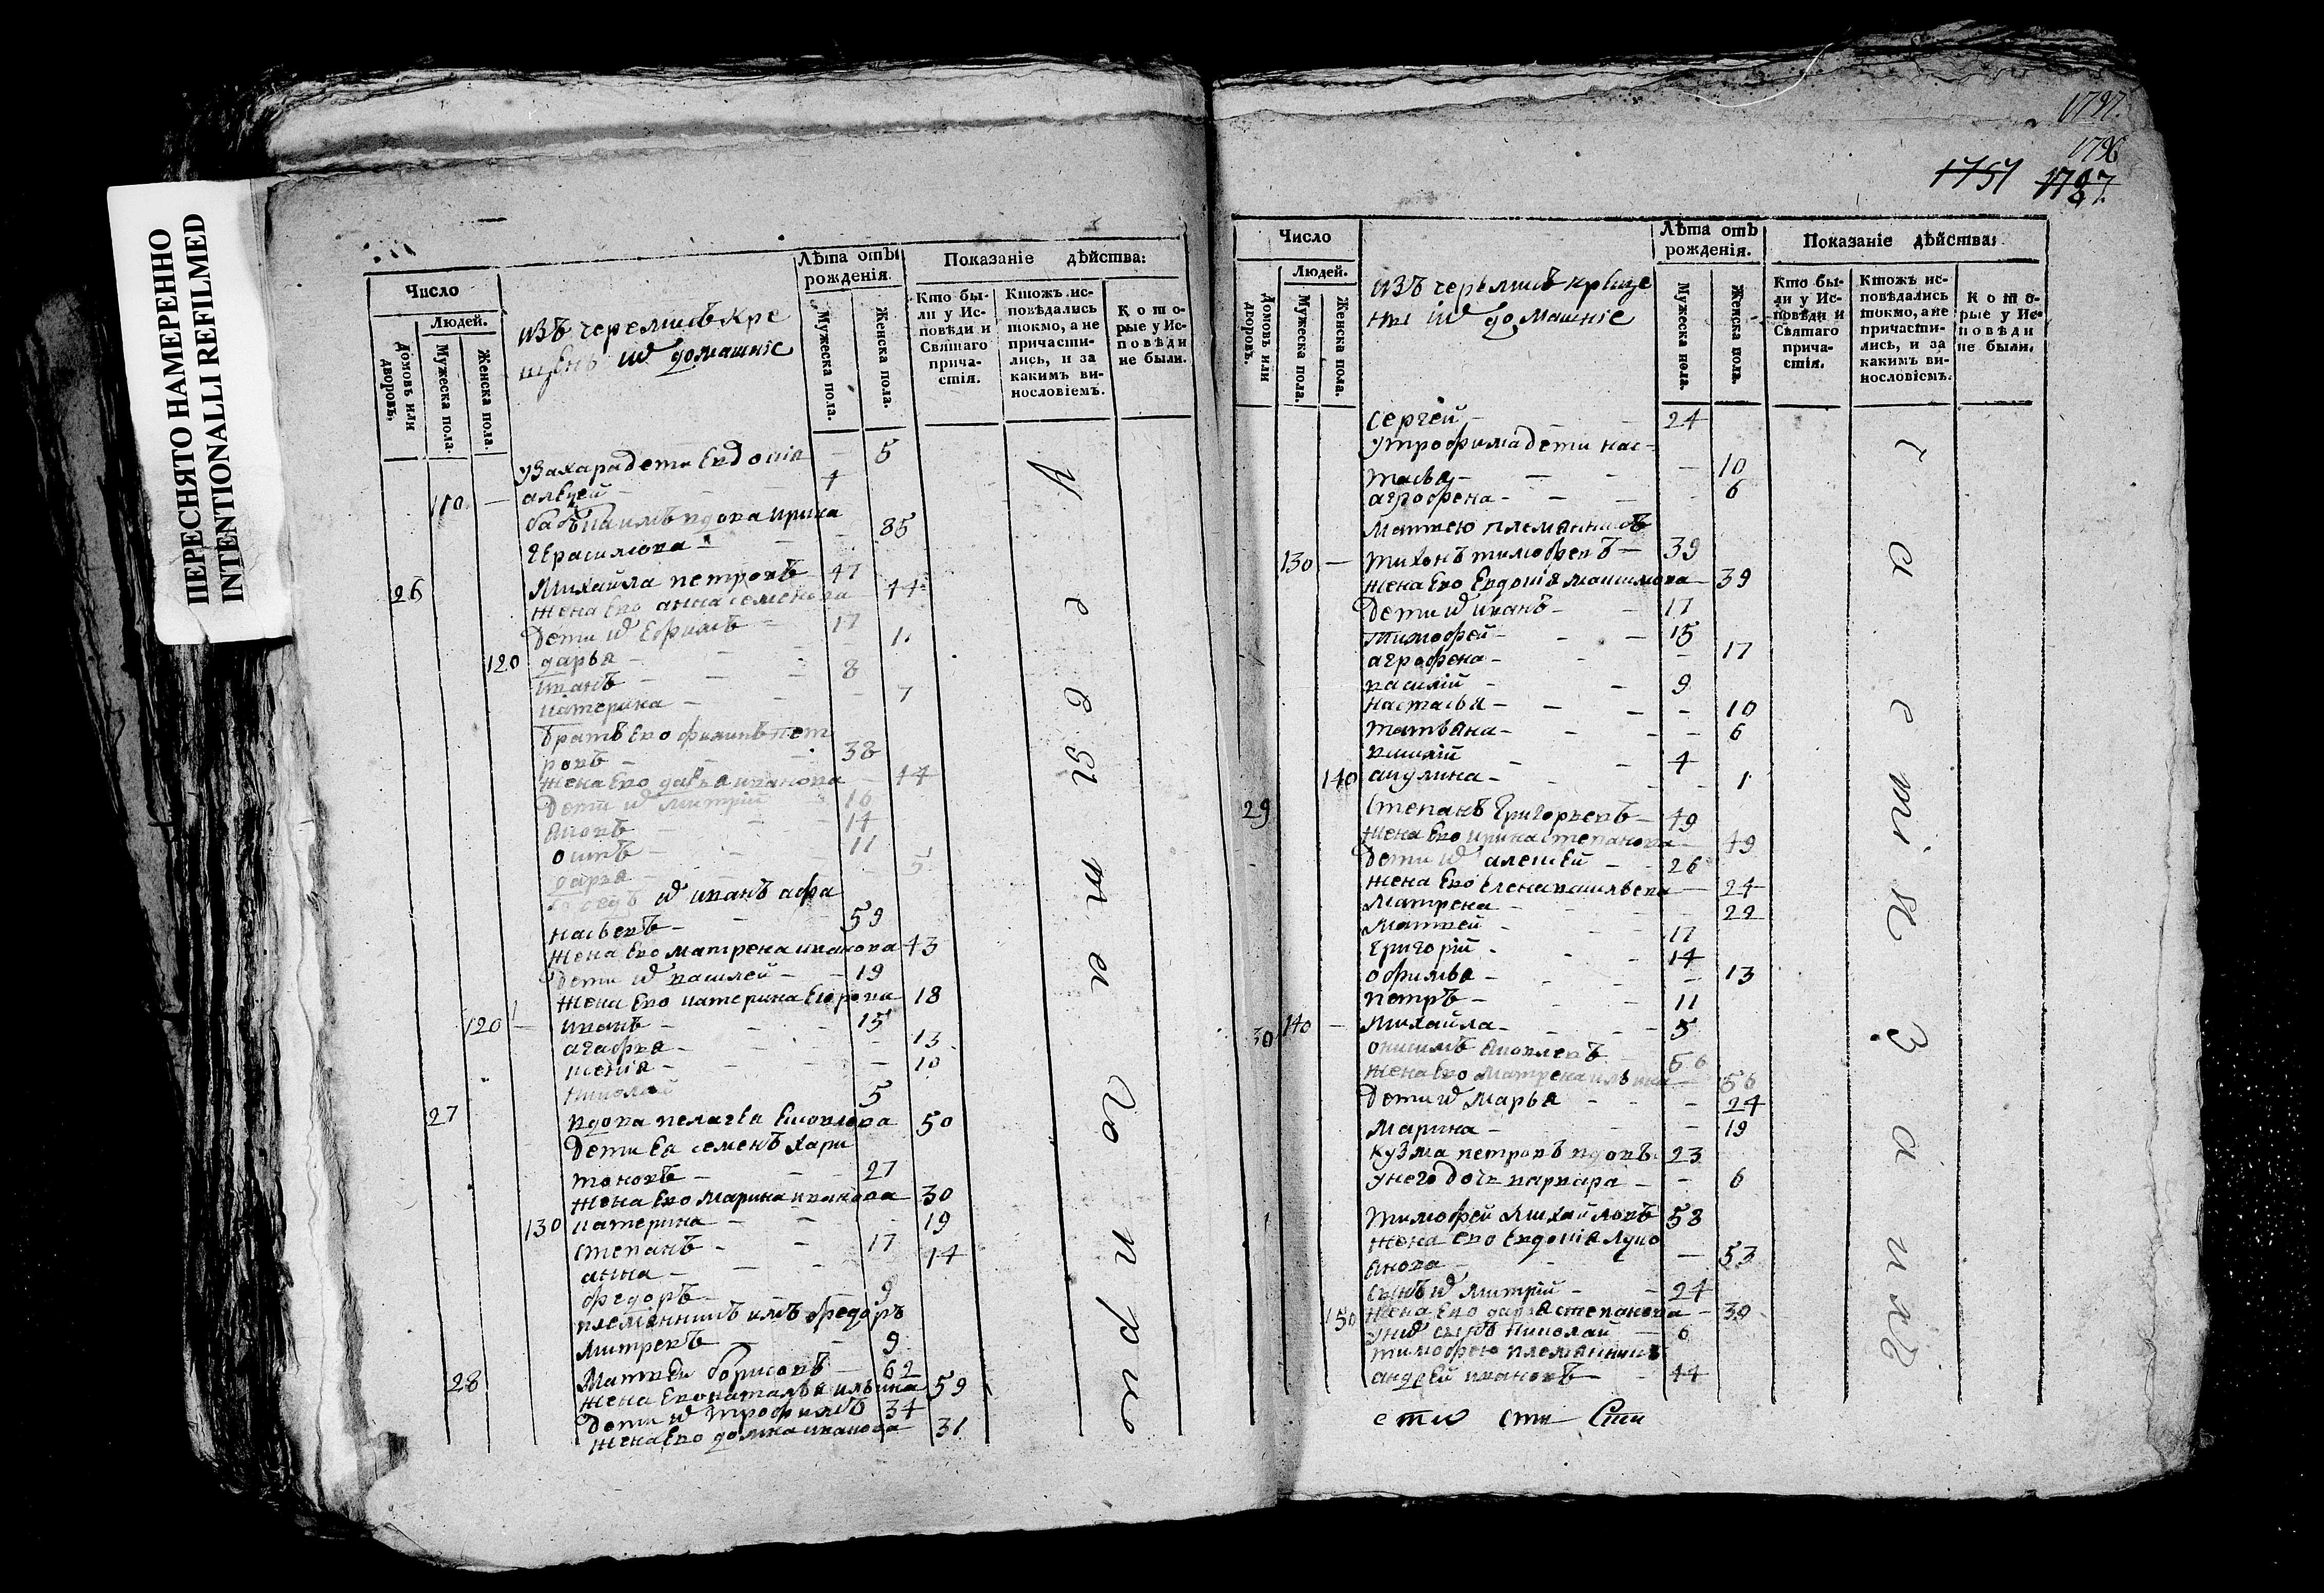 ПЕРЕСНЯТО НАМЕРЕННО
INTENTIONALLI REFILMED
Число
Людей.
Домовъ или дворовъ.
Мужеска пола.
Женска пола.
изъ черемисъ кре
щены и домашніе
Лѣта отъ
рожденія.
Мужеска пола.
Женска пола.
Показаніе дѣйства:
Кто бы-
ли у Ис-
повѣди и
Святаго
прича-
стія.
Ктожъ ис-
повѣдались
токмо, а не
причасти-
лись, и за
какимъ ви-
нословіемъ.
К о т о-
рые у Ис-
п о в ѣ д и
не были.
у Захара дети Евдокія — 5
110 — алеѯей — 4
бабка имъ вдова Ирина
Герасимова — 85
26 Михайла петровъ — 47
жена Ево анна семенова 44
Дети и Ефимъ — 17
120 дарья — 11
иванъ — 8
катерина — 7
братъ Ево филипъ пет
ровъ — 38
жена Ево дарья иванова — 44
Дети и митрій 16
яковъ — 14
осипъ — 11
дарья — 5
и иванъ афа
насьевъ — 59
жена Ево матрена иванова 43
Дети и василей — 19
жена Ево катерина Егорова 18
120 — иванъ — 15
агафья — 13
ксенія — 10
николай 5
27 вдова пелагея 50
Дети Ея семенъ хари
тоновъ — 27
жена Ево марина иванова 30
130 катерина — 19
степанъ — 17
анна — 14
федоръ — 9
племянникъ имъ федоръ
митревъ — 9
28 Матвей борисовъ — 62
жена Ево наталья ильина 59
Дети и трофимъ 34
жена Ево домна иванова 31
у
в
т
и
п
р
и
1797.
1796
1751 1787.
Число
Людей.
Домовъ или дворовъ.
Мужеска пола.
Женска пола.
изъ черемисъ креще
ны и домашніе
Лѣта отъ
рожденія.
Мужеска пола.
Женска пола.
Показаніе дѣйства:
Кто бы-
ли у Ис-
повѣди и
Святаго
прича-
стія.
Ктожъ ис-
повѣдались
токмо, а не
причасти-
лись, и за
какимъ ви-
нословіемъ.
К о т о-
рые у Ис-
п о в ѣ д и
не были.
Сергей — 24
У трофима дети нас-
тасья — 10
агрофена — 6
Матвею племянникъ
130 — тихонъ тимофевъ — 39
жена Ево Евдокія максимова — 39
Дети и иванъ — 17
тимофей — 15
агрофена — 17
василій — 9
настасья — 10
татьяна — 6
василій — 4
140 акулина — 1
29 Степанъ Григорьевъ — 49
жена Ево ирина степанова 49
Дети и алексей — 26
жена Ево Елена васильева — 24
матрена — 22
матвей — 17
григорій — 14
офимья — 13
петръ — 11
140 — михайла — 5
30 онисимъ яковлевъ 56
жена Ево матрена ильина — 56
Дети и марья — 24
марина — 19
Кузма петровъ вдовъ 23
у него дочь варвара — 6
тимофей михайловъ 58
жена Ево Евдокія лукь
янова — 53
сынъ и митрій — 24
150 жена Ево дарья степанова — 30
у них сынъ николай — 6
тимофею племянникъ
андрей ивановъ — 44
с
т
і
я
з
а
и
х
ъ
сти сти Сти